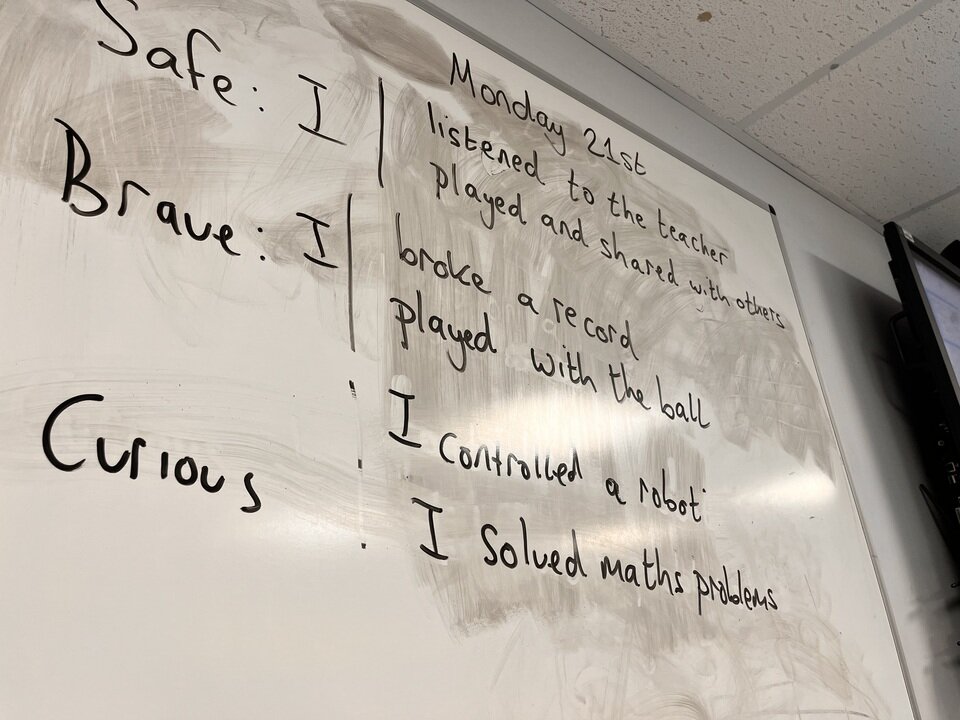 Monday 21st
Safe: I | listened to the teacher
played and shared with others
Brave: I | broke a record
played with the ball
Curious I controlled a robot
I solved maths problems